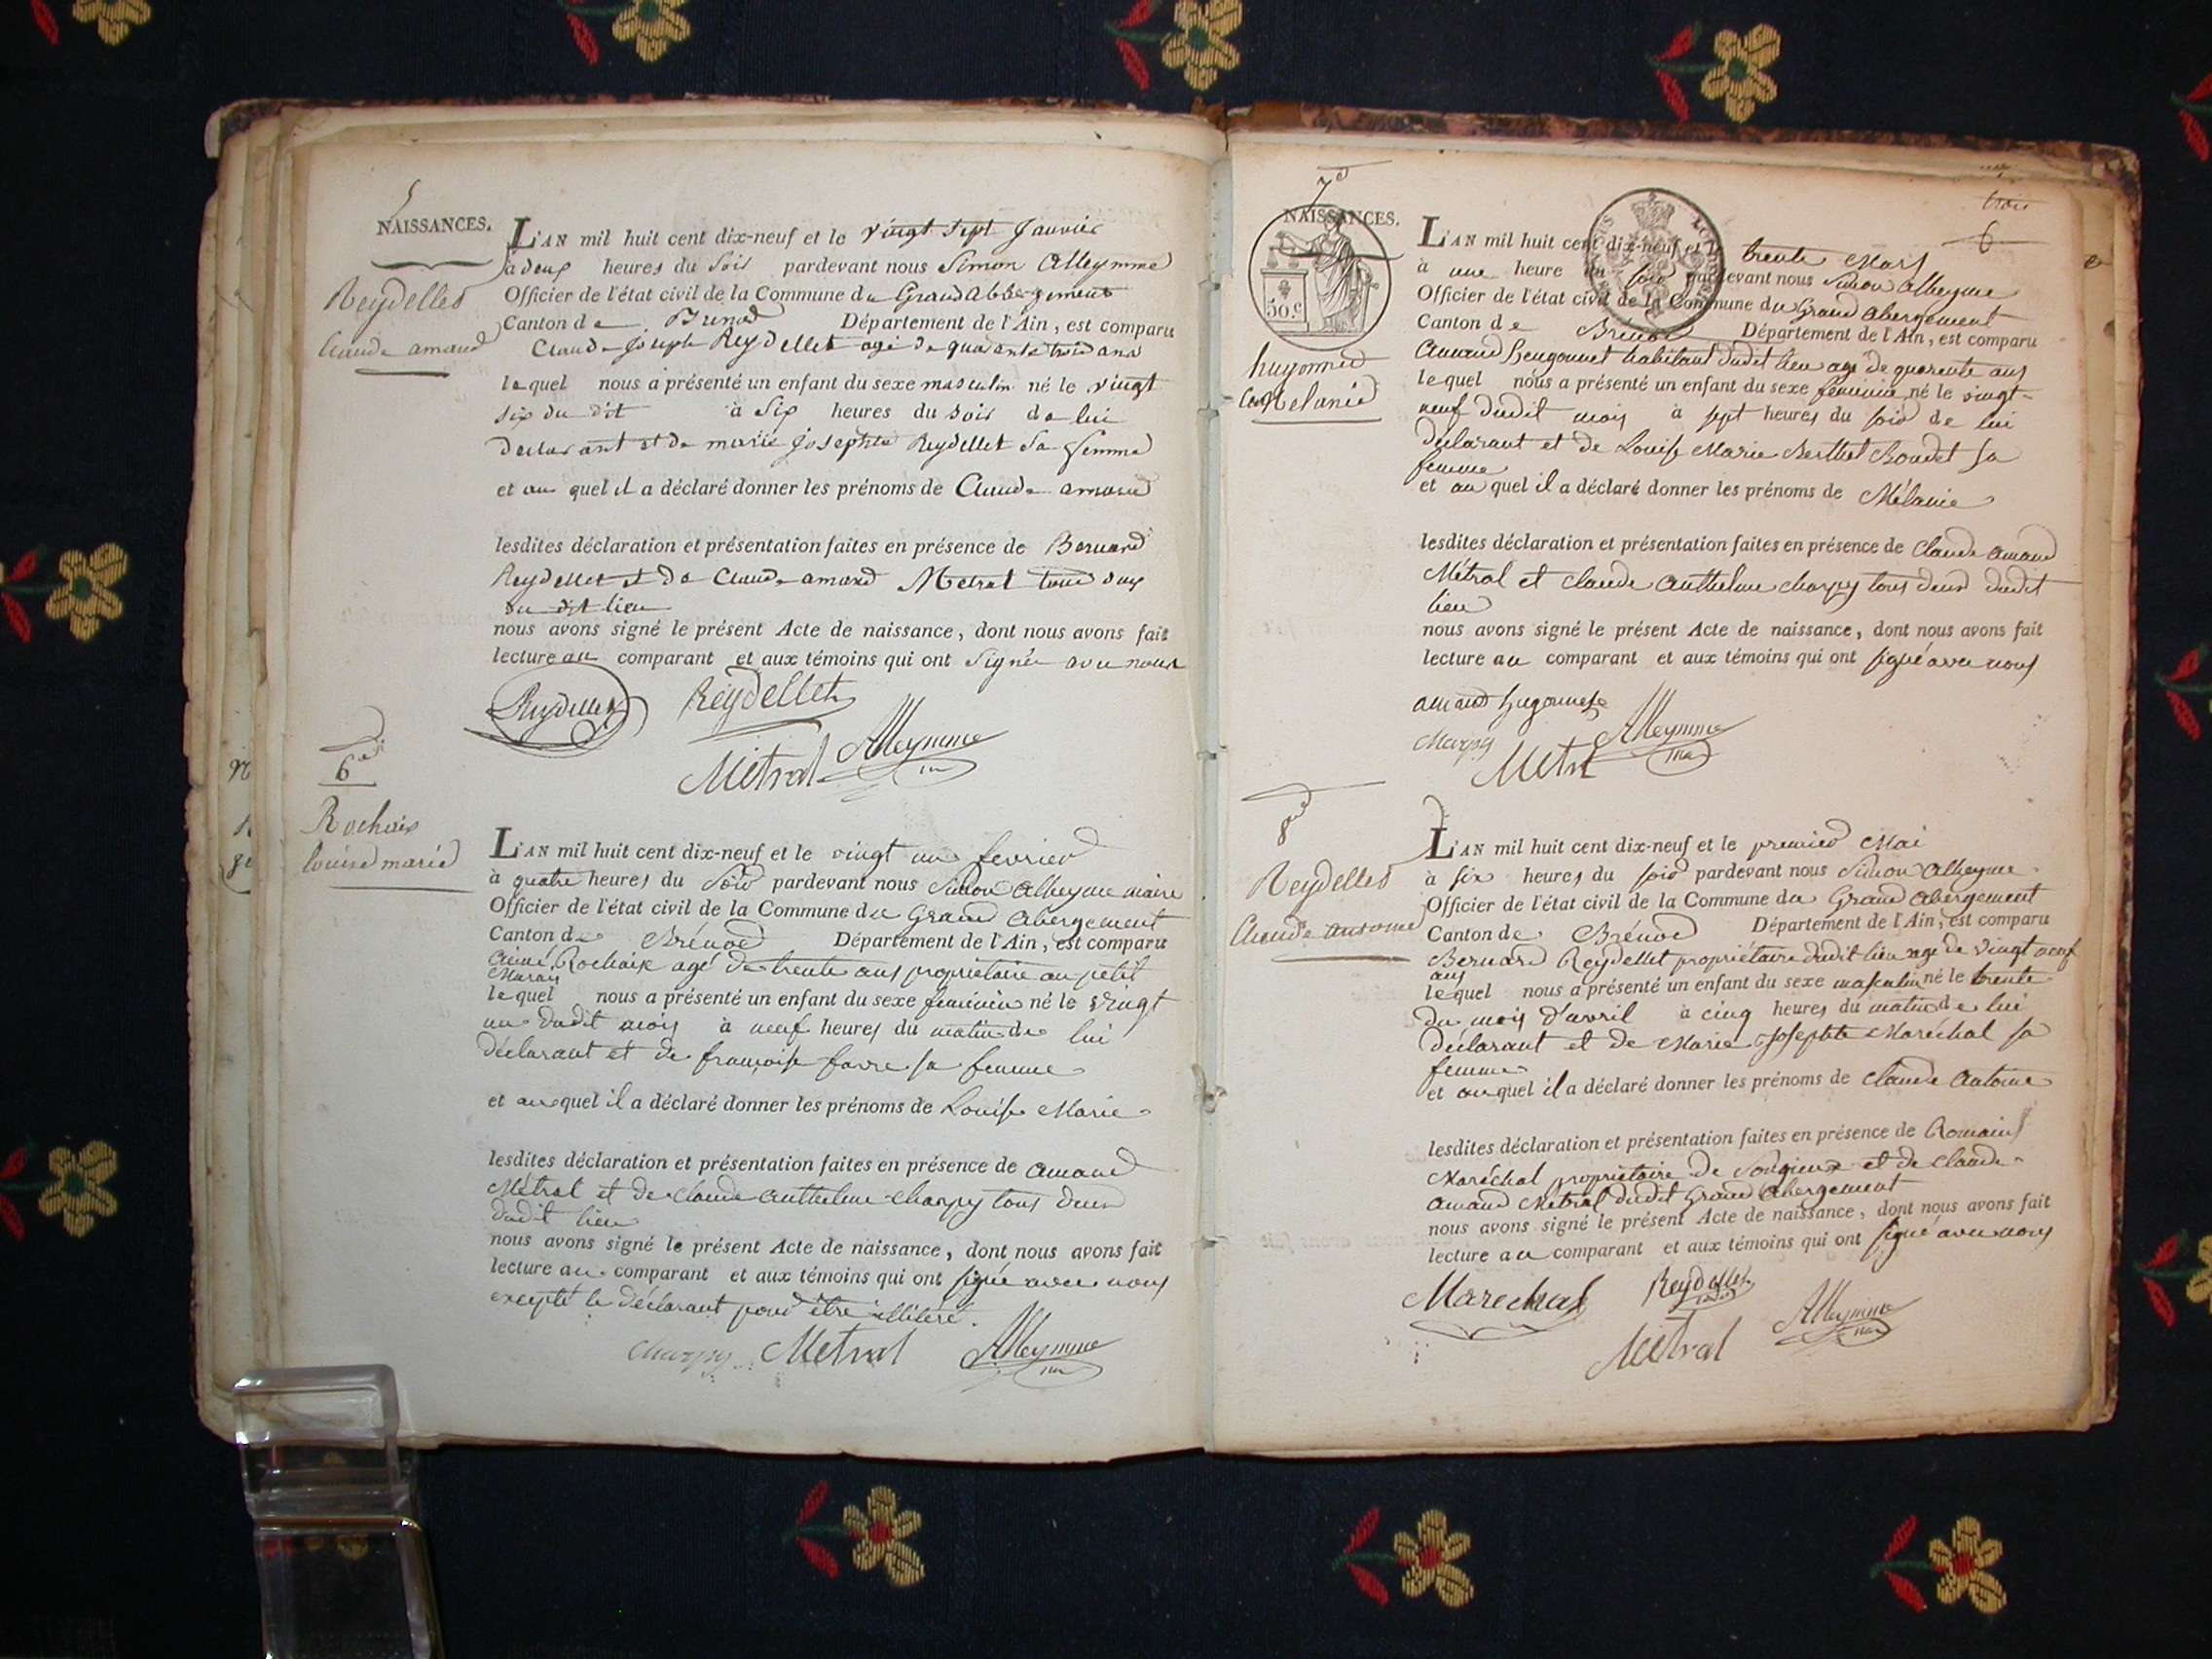 5
NAISSANCES.
Reydellet
Claude amand
L'AN mil huit cent dix-neuf et le vingt sept Janvier
à deux heures du soir pardevant nous Simon Alleymme
Officier de l'état civil de la Commune du Grand abbergement
Canton de Brenod Département de l'Ain, est comparu
Claude Joseph Reydellet agé de quarante trois ans
lequel nous a présenté un enfant du sexe masculin né le vingt
six du dit à six heures du soir de lui
declarant et de marie Josephte Reydellet sa femme
et au quel il a déclaré donner les prénoms de Claude amand
lesdites déclaration et présentation faites en présence de Bernard
Reydellet et de Claude amand Metral tous deux
du dit lieu
nous avons signé le présent Acte de naissance, dont nous avons fait
lecture au comparant et aux témoins qui ont signé avec nous
Reydellet Reydellet
Métral Alleymme
6
Rochaix
louise marie
L'AN mil huit cent dix-neuf et le vingt un fevrier
à quatre heures du soir pardevant nous Simon alleyme maire
Officier de l'état civil de la Commune du Grand abergement
Canton de Brénod Département de l'Ain, est comparu
Aimé Rochaix agé de trente ans propriétaire au petit
Marais
lequel nous a présenté un enfant du sexe féminin né le vingt
un dudit mois à neuf heures du matin de lui
déclarant et de françoise favre sa femme
et au quel il a déclaré donner les prénoms de Louise Marie
lesdites déclaration et présentation faites en présence de amand
Métral et de claude anthelme charpy tous deux
dudit lieu
nous avons signé le présent Acte de naissance, dont nous avons fait
lecture au comparant et aux témoins qui ont signé avec nous
excepté le déclarant pour être illitéré.
charpy Metral Alleymme
trois
6
7
NAISSANCES.
50.c
hugonnet
Melanie
L'AN mil huit cent dix-neuf et le trente Mars
à une heure du soir pardevant nous Simon Alleyme
Officier de l'état civil de la Commune du Grand abergement
Canton de Brénod Département de l'Ain, est comparu
Amand hugonnet habitant dudit lieu age de quarente ans
lequel nous a présenté un enfant du sexe féminin né le vingt-
neuf dudit mois à sept heures du soir de lui
déclarant et de Louise Marie Berthet Bondet sa
femme
et au quel il a déclaré donner les prénoms de Mélanie
lesdites déclaration et présentation faites en présence de Claude amand
Métral et claude anthelme charpy tous deux dudit
lieu
nous avons signé le présent Acte de naissance, dont nous avons fait
lecture au comparant et aux témoins qui ont signé avec nous
amand hugonnet
charpy Alleymme
8
Reydellet
Claude antoine
L'AN mil huit cent dix-neuf et le premier Mai
à six heures du soir pardevant nous Simon Alleyme
Officier de l'état civil de la Commune du Grand abergement
Canton de Brénod Département de l'Ain, est comparu
Bernard Reydellet propriétaire dudit lieu age de vingt neuf
ans
lequel nous a présenté un enfant du sexe masculin né le trente
du mois d'avril à cinq heures du matin de lui
déclarant et de Marie Josephte Maréchal sa
femme
et au quel il a déclaré donner les prénoms de Claude Antoine
lesdites déclaration et présentation faites en présence de Romain
Maréchal propriétaire de Songieux et de claude
amand Métral dudit Grand abergement
nous avons signé le présent Acte de naissance, dont nous avons fait
lecture au comparant et aux témoins qui ont signé avec nous
Marechal Reydellet
Métral Alleymme